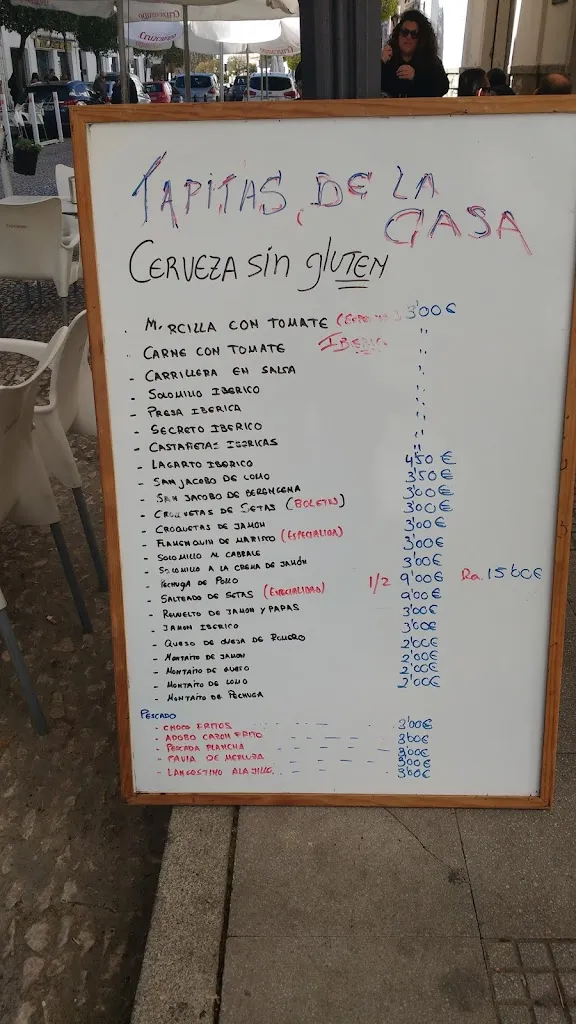 TAPITAS DE LA CASA
CERVEZA sin gluTEN
- M. RCILLA CON TOMATE 3'00€
- CARNE CON TOMATE "
- CARRILLERA EN SALSA "
- SOLOMILLO IBERICO "
- PRESA IBERICA "
- SECRETO IBERICO "
- CASTAÑETAS IBERICAS "
- LAGARTO IBERICO 4'50 €
- SAN JACOBO DE LOMO 3'50€
- SAN JACOBO DE BERENGENA 3'00€
- CROQUETAS DE SETAS (BOLETUS) 3'00€
- CROQUETAS DE JAMON 3'00€
- FLAMENQUIN DE MARISCO (ESPECIALIDAD) 3'00€
- SOLOMILLO AL CABRALE
- SOLOMILLO A LA CREMA DE JAMÓN 3'00€
- PECHUGA DE POLLO 1/2 9'00€ Ra. 15'00€
- SALTEADO DE SETAS (ESPECIALIDAD) 9'00€
- REVUELTO DE JAMON Y PAPAS 3'00€
- JAMON IBERICO 3'00€
- QUESO DE OVEJA DE ROMERO 2'00€
- MONTAITO DE JAMON 2'00€
- MONTAITO DE QUESO 2'00€
- MONTAITO DE LOMO 2'00€
- MONTAITO DE PECHUGA
PESCADO
- CHOCO FRITOS 3'00€
- ADOBO CAZON FRITO 3'00€
- PESCADA PLANCHA 3'00€
- PAVIA DE MERLUZA 3'00€
- LANGOSTINO AL AJILLO 3'00€